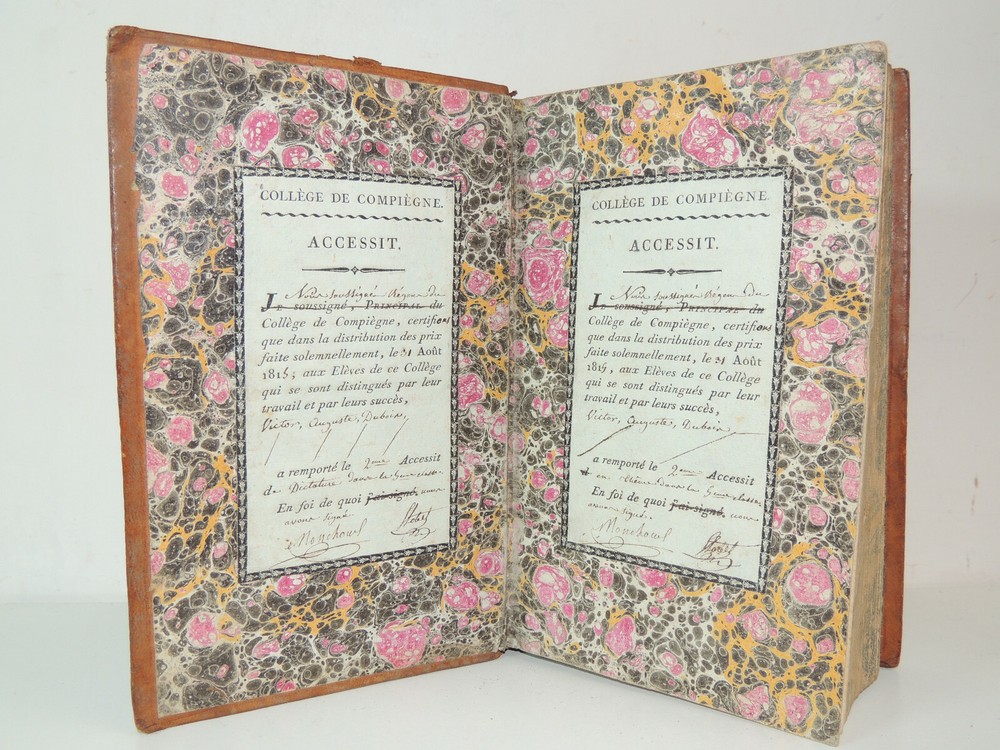 COLLÈGE DE COMPIÈGNE.
ACCESSIT.
Nous soussigné Régens du
Le soussigné, Principal du
Collège de Compiègne, certifions
que dans la distribution des prix
faite solemnellement, le 31 Août
1815, aux Elèves de ce Collège
qui se sont distingués par leur
travail et par leurs succès,
Victor, Auguste, Dubois,
a remporté le 2eme Accessit
de Dictature dans la 6eme classe
En foi de quoi j'ai signé, nous
avons signé.
Monchowl
COLLÈGE DE COMPIÈGNE.
ACCESSIT.
Nous soussigné Régens du
Le soussigné, Principal du
Collège de Compiègne, certifions
que dans la distribution des prix
faite solemnellement, le 31 Août
1815, aux Elèves de ce Collège
qui se sont distingués par leur
travail et par leurs succès,
Victor, Auguste, Dubois
a remporté le 2eme Accessit
en thême dans la 6eme classe
En foi de quoi j'ai signé, nous
avons signé.
Monchowl